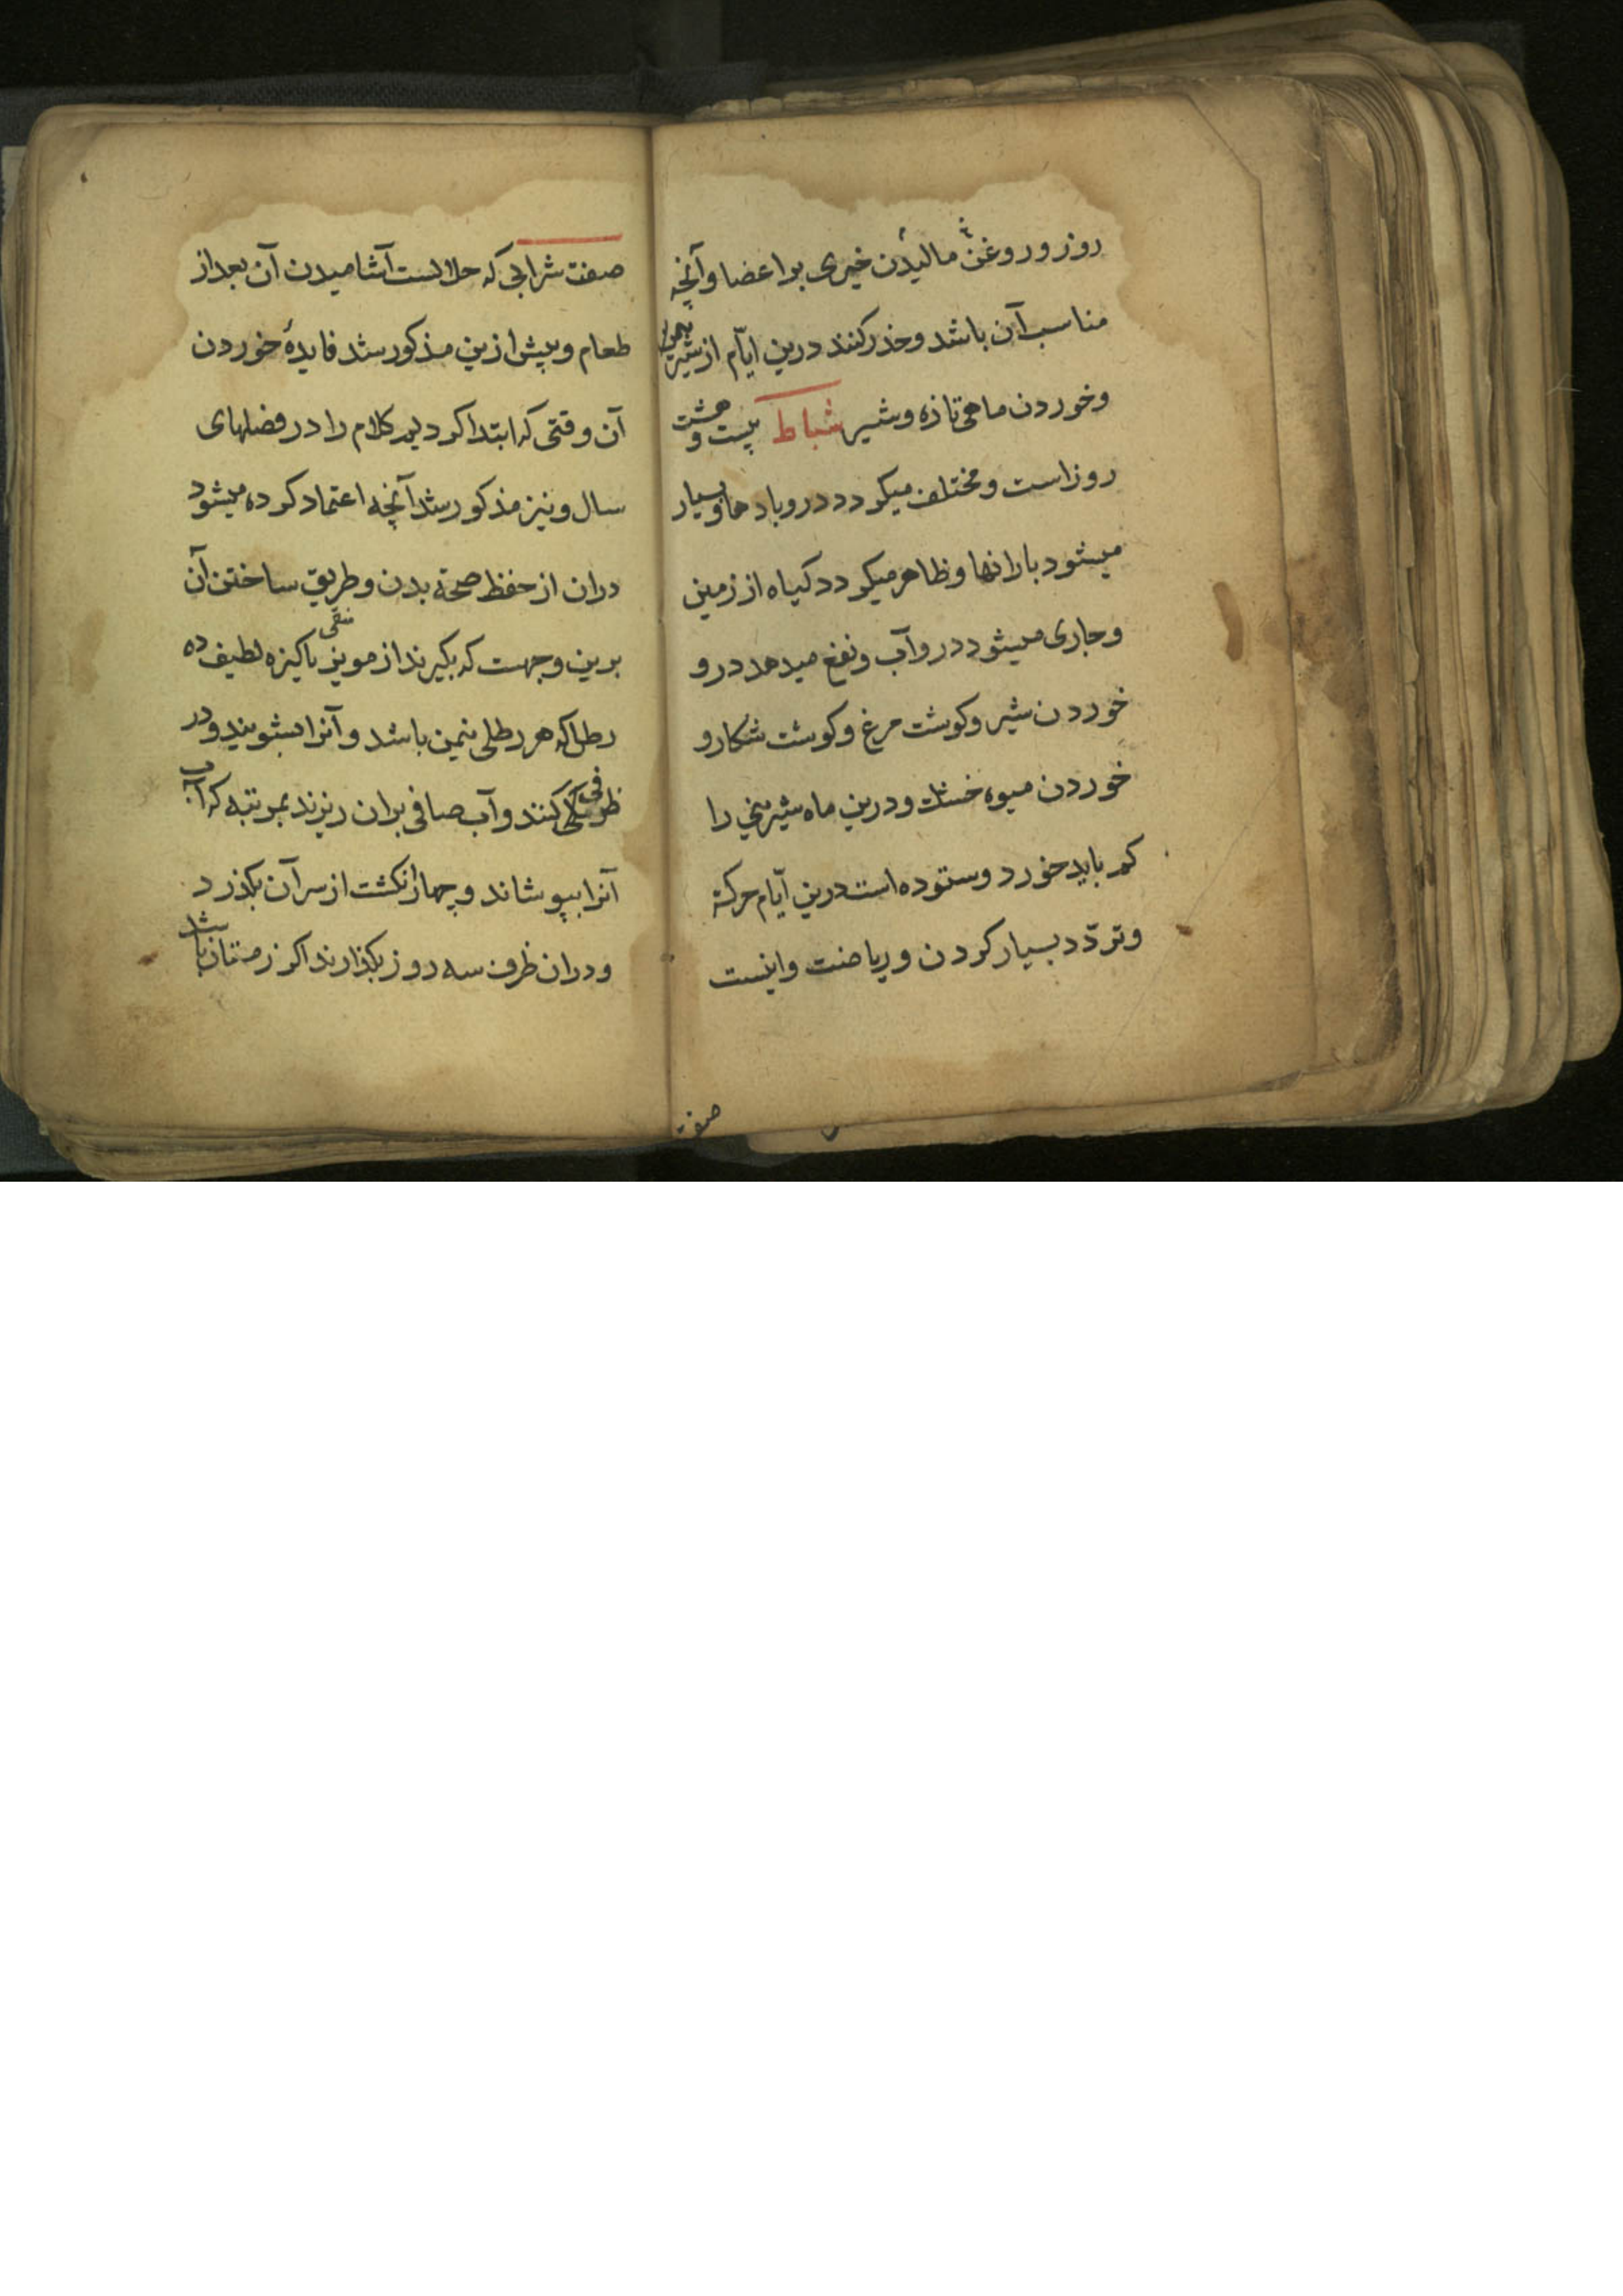 روز و روغن مالیدن خیری بر اعضا و آنچه
مناسب آن باشد و حذر کنند درین ایّام از شیرینی
و خوردن ماهی تازه و شیر شباط بیست و هشت
روز است و مختلف میکردد درو بادها و بسیار
میشود بارانها و ظاهر میکردد کیاه از زمین
و جاری میشود درو آب و نفع میدهد درو
خوردن سیر و کوشت مرغ و کوشت شکار و
خوردن میوه خشک و درین ماه شیرینی را
کم باید خورد و ستوده است درین ایّام حرکة
و تردّد بسیار کردن و ریاضت و اینست
صفت
صفت شرابی که حلالست آشامیدن آن بعد از
طعام و پیش ازین مذکور شد فایدهٔ خوردن
آن وقتی که ابتدا کردیم کلام را در فصلهای
سال و نیز مذکور شد آنچه اعتماد کرده میشود
دران از حفظ صحة بدن و طریق ساختن آن
برین وجهست که بکیرند از مویز منقی پاکیزه لطیف ده
رطل که هر رطلی نیمن باشد و آنرا بشویند و در
ظرفی کنند و آب صافی بران ریزند بمرتبه که آب
آنرا بپوشاند و چهار انکشت از سر آن بکذرد
و دران ظرف سه روز بکذارند اکر زمستان باشد